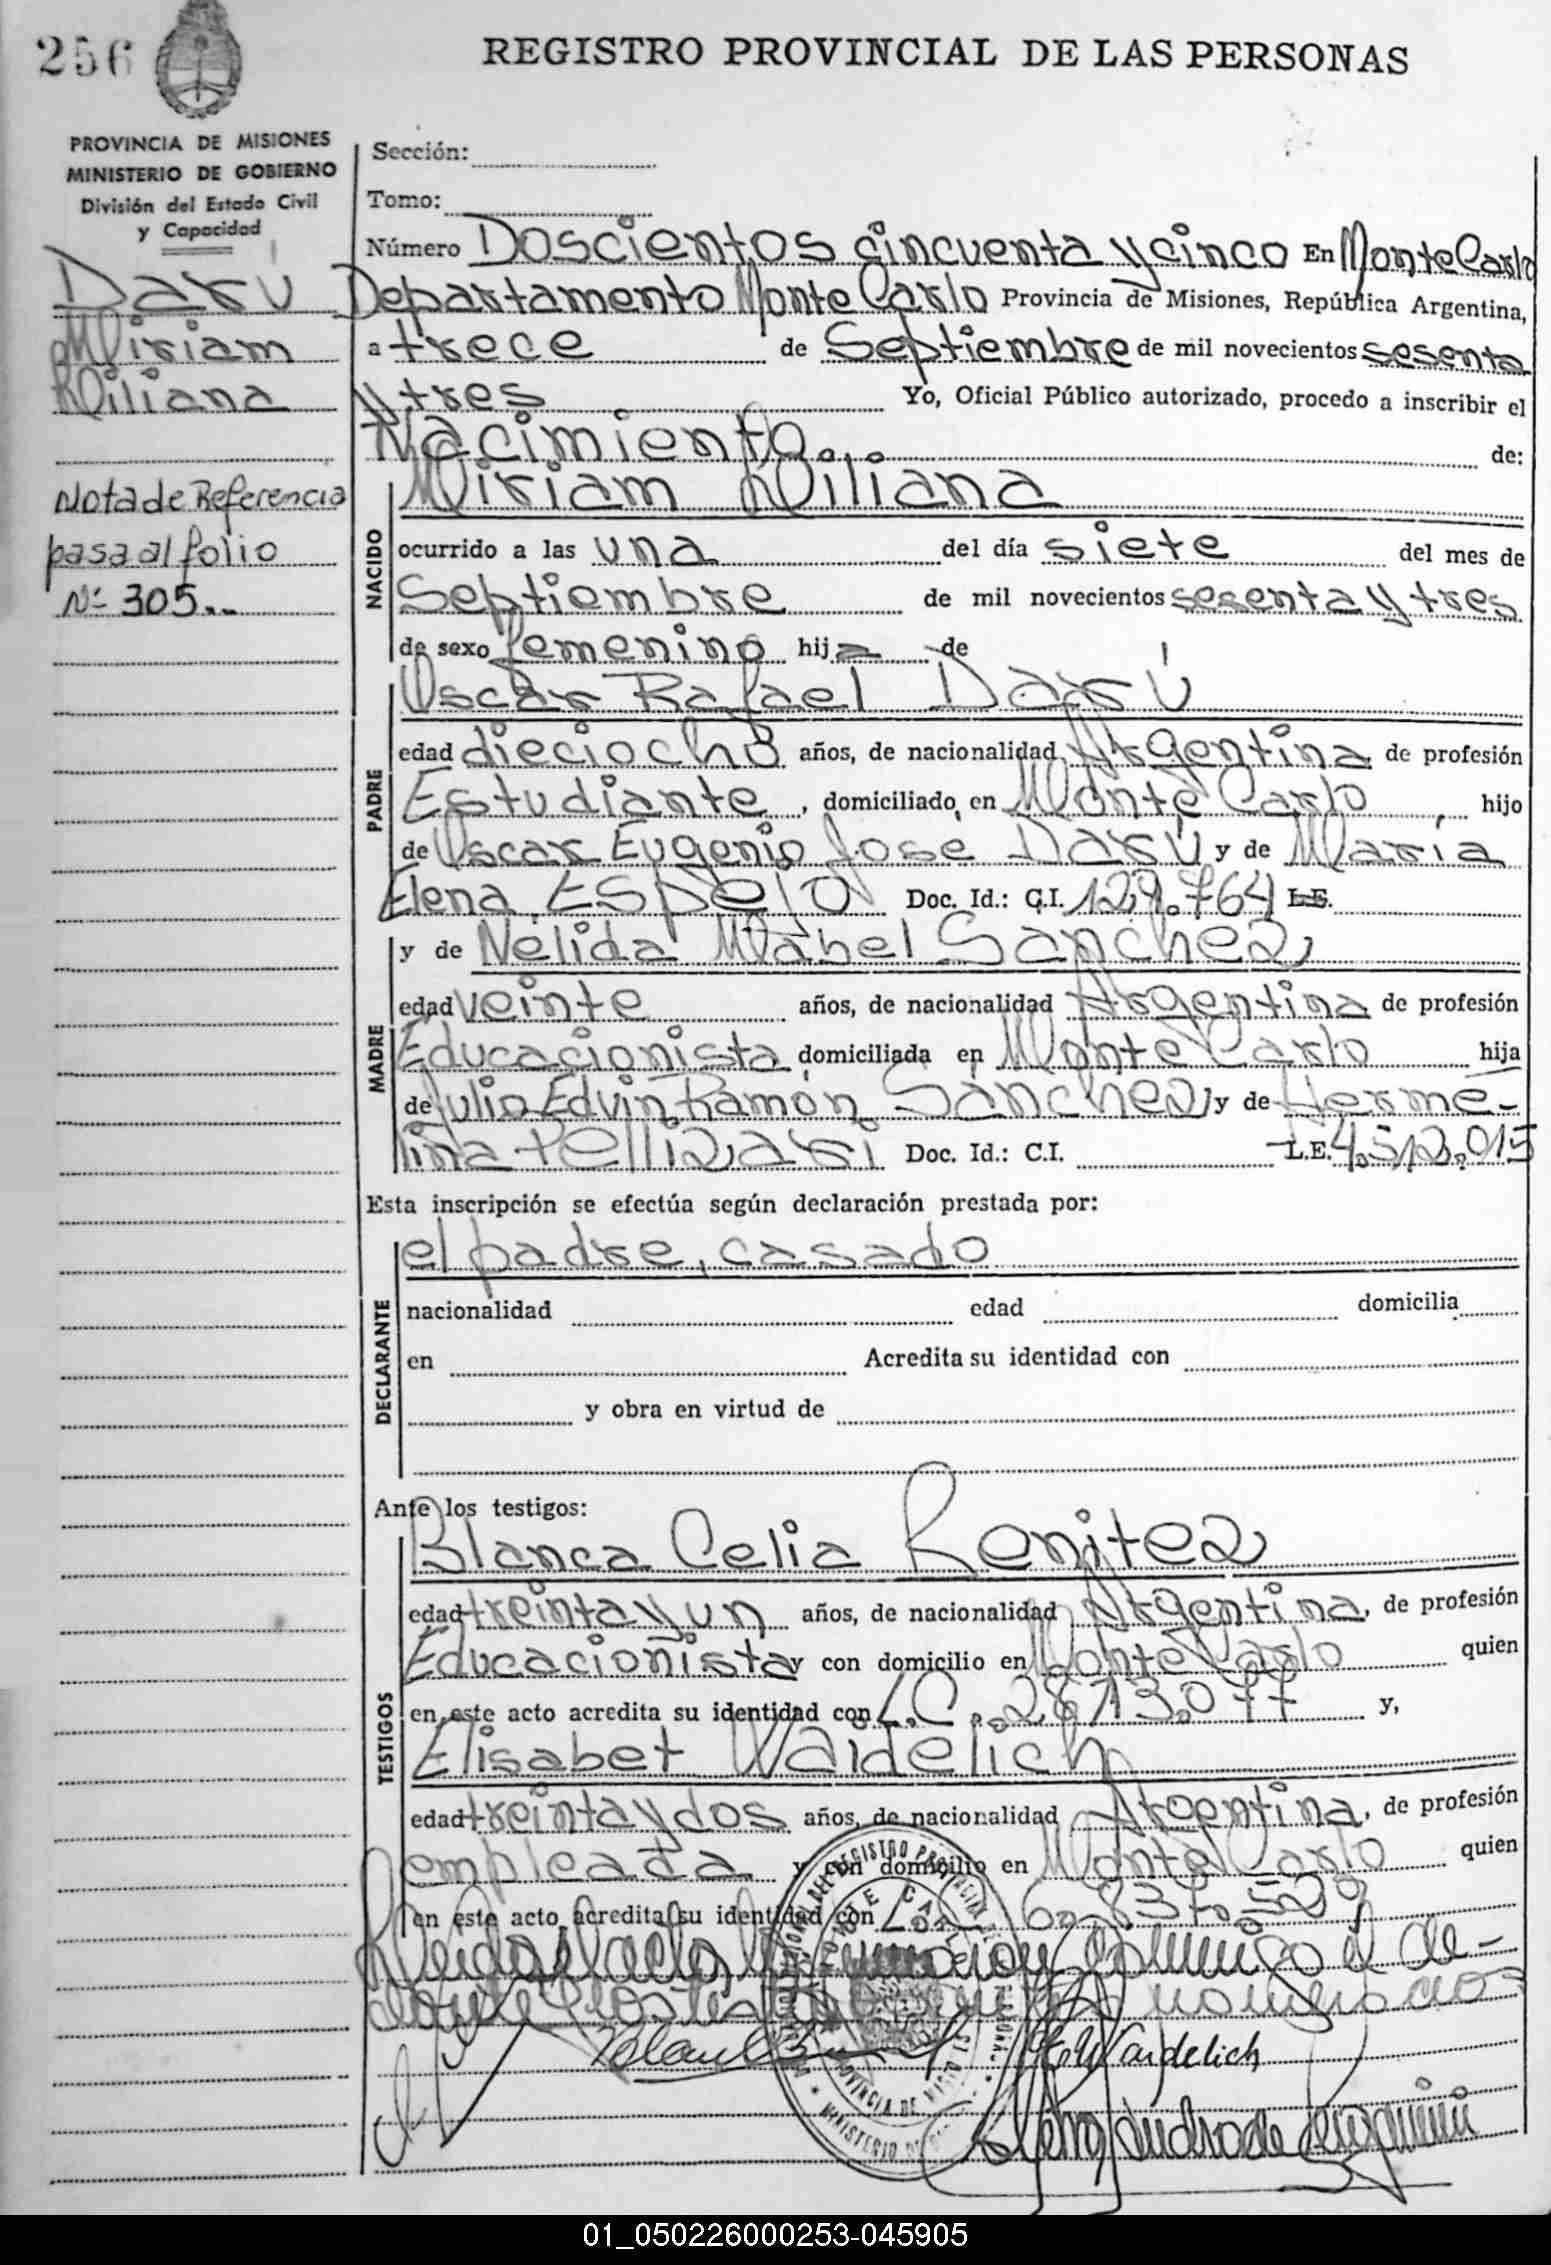 256
REGISTRO PROVINCIAL DE LAS PERSONAS
PROVINCIA DE MISIONES
MINISTERIO DE GOBIERNO
División del Estado Civil
y Capacidad
Darú
Miriam
Liliana
Nota de Referencia
pasa al folio
Nº 305..
Sección:
Tomo:
Número Doscientos cincuenta y cinco En Monte Carlo
Departamento Monte Carlo Provincia de Misiones, República Argentina,
a trece de Septiembre de mil novecientos sesenta
y tres Yo, Oficial Público autorizado, procedo a inscribir el
Nacimiento de:
NACIDO
Miriam Liliana
ocurrido a las una del día siete del mes de
Septiembre de mil novecientos sesenta y tres
de sexo femenino hija de
PADRE
Oscar Rafael Darú
edad dieciocho años, de nacionalidad Argentina de profesión
Estudiante, domiciliado en Monte Carlo hijo
de Oscar Eugenio José Darú y de María
Elena Espejo Doc. Id.: C.I. 129.764 L.E.
MADRE
y de Nélida Mabel Sánchez
edad veinte años, de nacionalidad Argentina de profesión
Educacionista domiciliada en Monte Carlo hija
de Julio Edvin Ramón Sánchez y de Herme-
lina Pellizari Doc. Id.: C.I. L.E. 4.512.015
Esta inscripción se efectúa según declaración prestada por:
DECLARANTE
el padre, casado
nacionalidad edad domicilia
en Acredita su identidad con
y obra en virtud de
Ante los testigos:
TESTIGOS
Blanca Celia Benitez
edad treinta y un años, de nacionalidad Argentina, de profesión
Educacionista y con domicilio en Monte Carlo quien
en este acto acredita su identidad con L.C. 2813.077 y,
Elisabet Waidelich
edad treinta y dos años, de nacionalidad Argentina, de profesión
empleada y con domicilio en Monte Carlo quien
en este acto acredita su identidad con L.C. 6.837.529
Leída el acta la firman conmigo el de-
clarante y los testigos mencionados
E. Waidelich
MONTE CARLO
PROVINCIA DE MISIONES
01_050226000253-045905